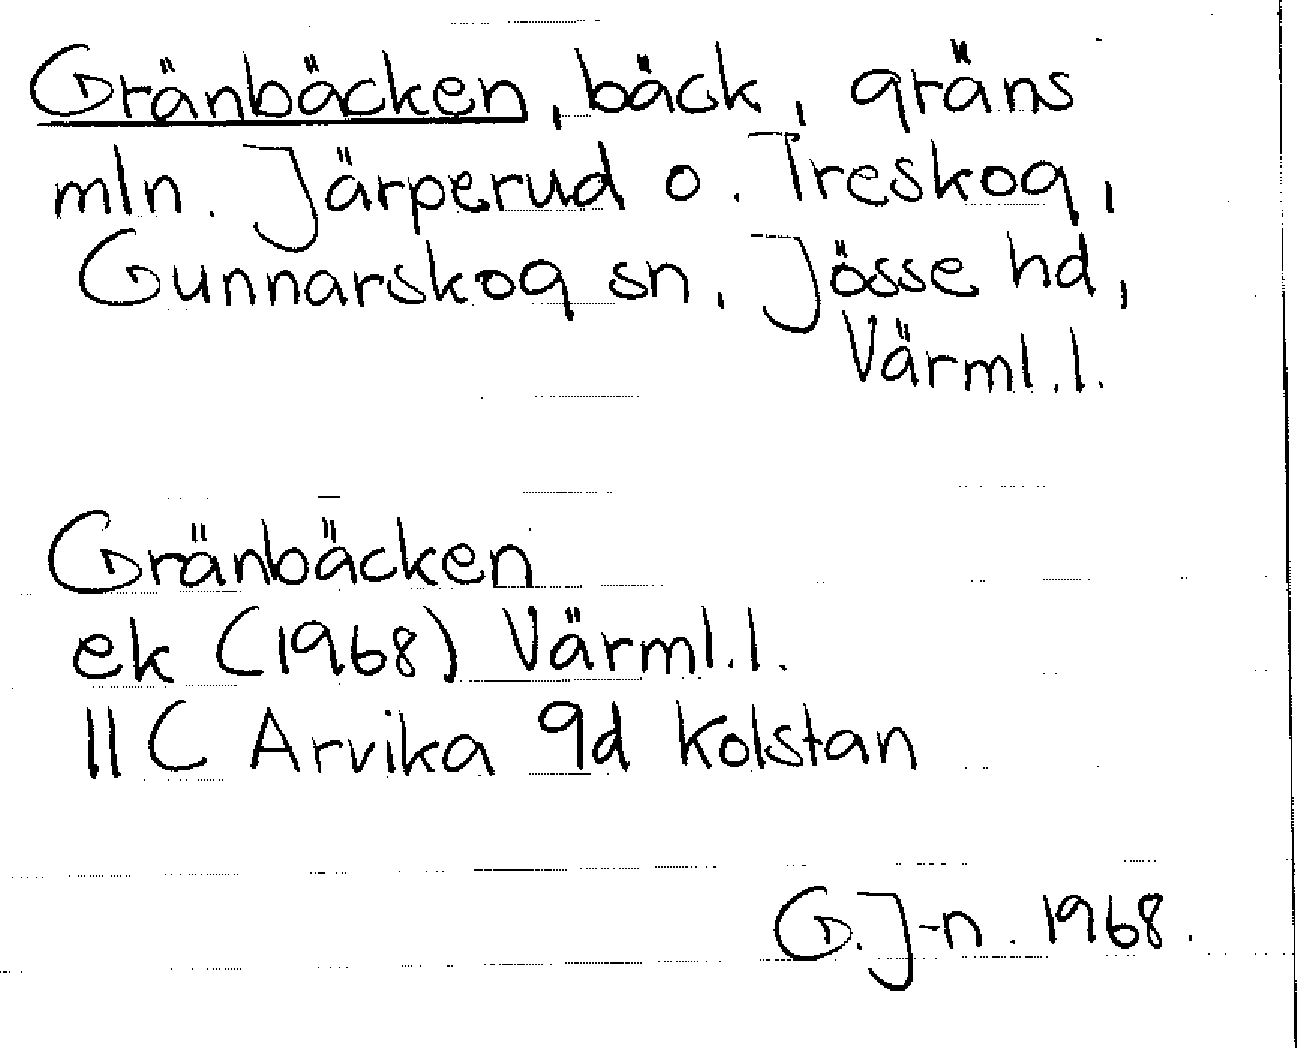 Gränbäcken, bäck, gräns
mln. Järperud o. Treskog,
Gunnarskog sn, Jösse hd,
Värml.l.
Gränbäcken
ek (1968) Värml.l.
11C Arvika 9d Kolstan
G.J-n. 1968.